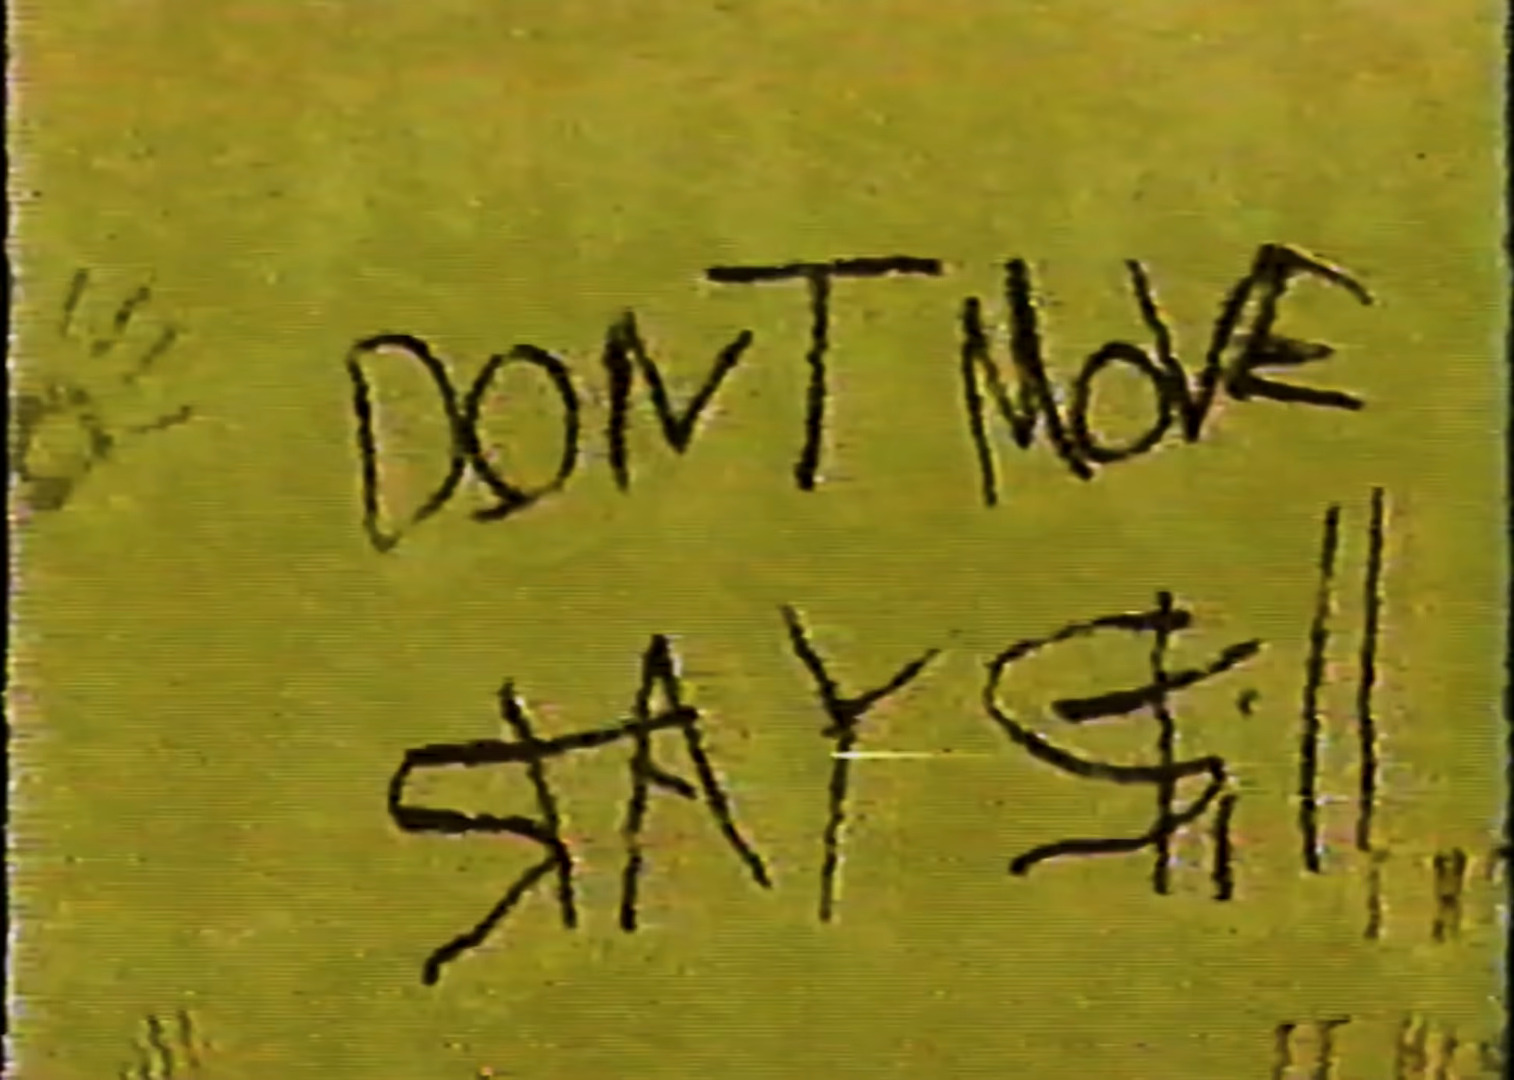 DONT MOVE
STAY Still